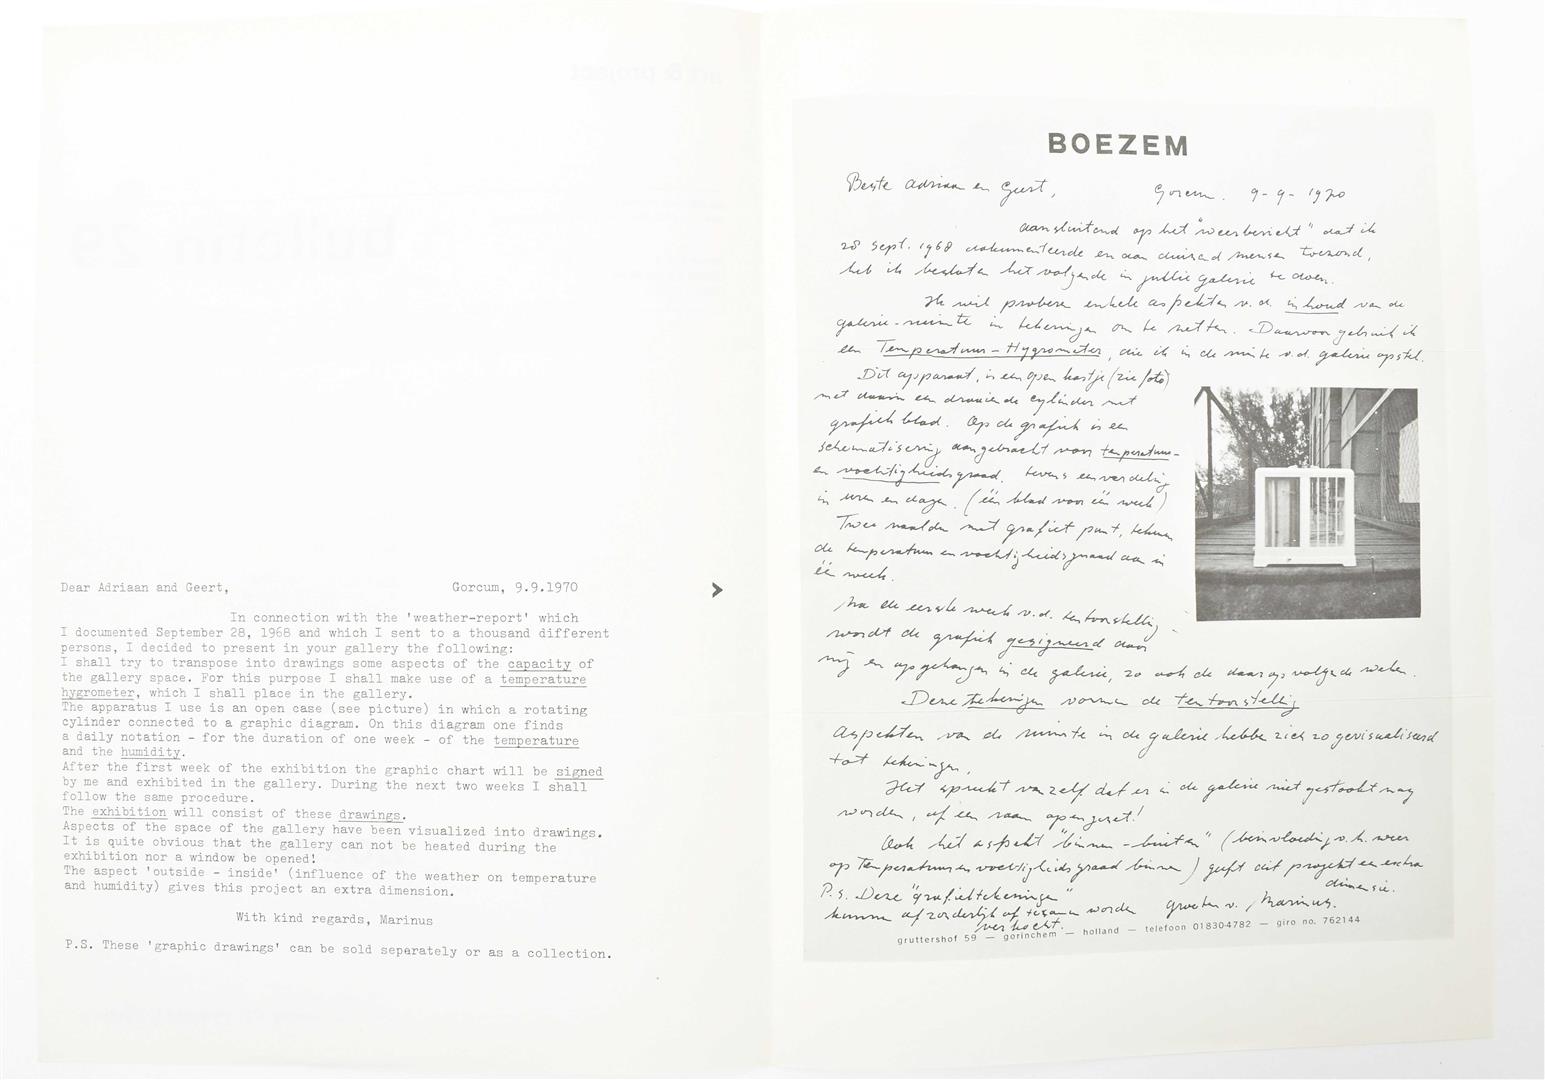 Dear Adriaan and Geert, Gorcum, 9.9.1970
In connection with the 'weather-report' which
I documented September 28, 1968 and which I sent to a thousand different
persons, I decided to present in your gallery the following:
I shall try to transpose into drawings some aspects of the capacity of
the gallery space. For this purpose I shall make use of a temperature
hygrometer, which I shall place in the gallery.
The apparatus I use is an open case (see picture) in which a rotating
cylinder connected to a graphic diagram. On this diagram one finds
a daily notation - for the duration of one week - of the temperature
and the humidity.
After the first week of the exhibition the graphic chart will be signed
by me and exhibited in the gallery. During the next two weeks I shall
follow the same procedure.
The exhibition will consist of these drawings.
Aspects of the space of the gallery have been visualized into drawings.
It is quite obvious that the gallery can not be heated during the
exhibition nor a window be opened!
The aspect 'outside - inside' (influence of the weather on temperature
and humidity) gives this project an extra dimension.
With kind regards, Marinus
P.S. These 'graphic drawings' can be sold seperately or as a collection.
>
BOEZEM
Beste Adriaan en Geert, Gorcum. 9-9-1970
aansluitend op het "weerbericht" dat ik
28 sept. 1968 dokumenteerde en aan duizend mensen toezond,
heb ik besloten het volgende in jullie galerie te doen.
Ik wil proberen enkele aspekten v.d. inhoud van de
galerie-ruimte in tekeningen om te zetten. Daarvoor gebruik ik
een Temperatuur-Hygrometer, die ik in de ruimte v.d. galerie opstel.
Dit apparaat, is een open kastje (zie foto)
met daarin een draaiende cylinder met
grafiek blad. Op de grafiek is een
schematisering aangebracht voor temperatuur-
en vochtigheidsgraad. tevens een verdeling
in uren en dagen. (één blad voor één week)
Twee naalden met grafiet punt, tekenen
de temperatuur en vochtigheidsgraad aan in
één week.
Na de eerste week v.d. tentoonstelling
wordt de grafiek gesigneerd door
mij en opgehangen in de galerie, zo ook de daarop volgende weken.
Deze tekeningen vormen de tentoonstelling
Aspekten van de ruimte in de galerie hebben zich zo gevisualiseerd
tot tekeningen.
Het spreekt vanzelf dat er in de galerie niet gestookt mag
worden, of een raam opengezet!
Ook het aspekt "binnen-buiten" (beinvloeding v.h. weer
op temperatuur en vochtigheidsgraad binnen) geeft dit projekt een extra
dimensie.
P.S. Deze "grafiektekeningen"
kunnen afzonderlijk of tesamen worden groeten v. Marinus.
verkocht.
gruttershof 59 — gorinchem — holland — telefoon 018304782 — giro no. 762144